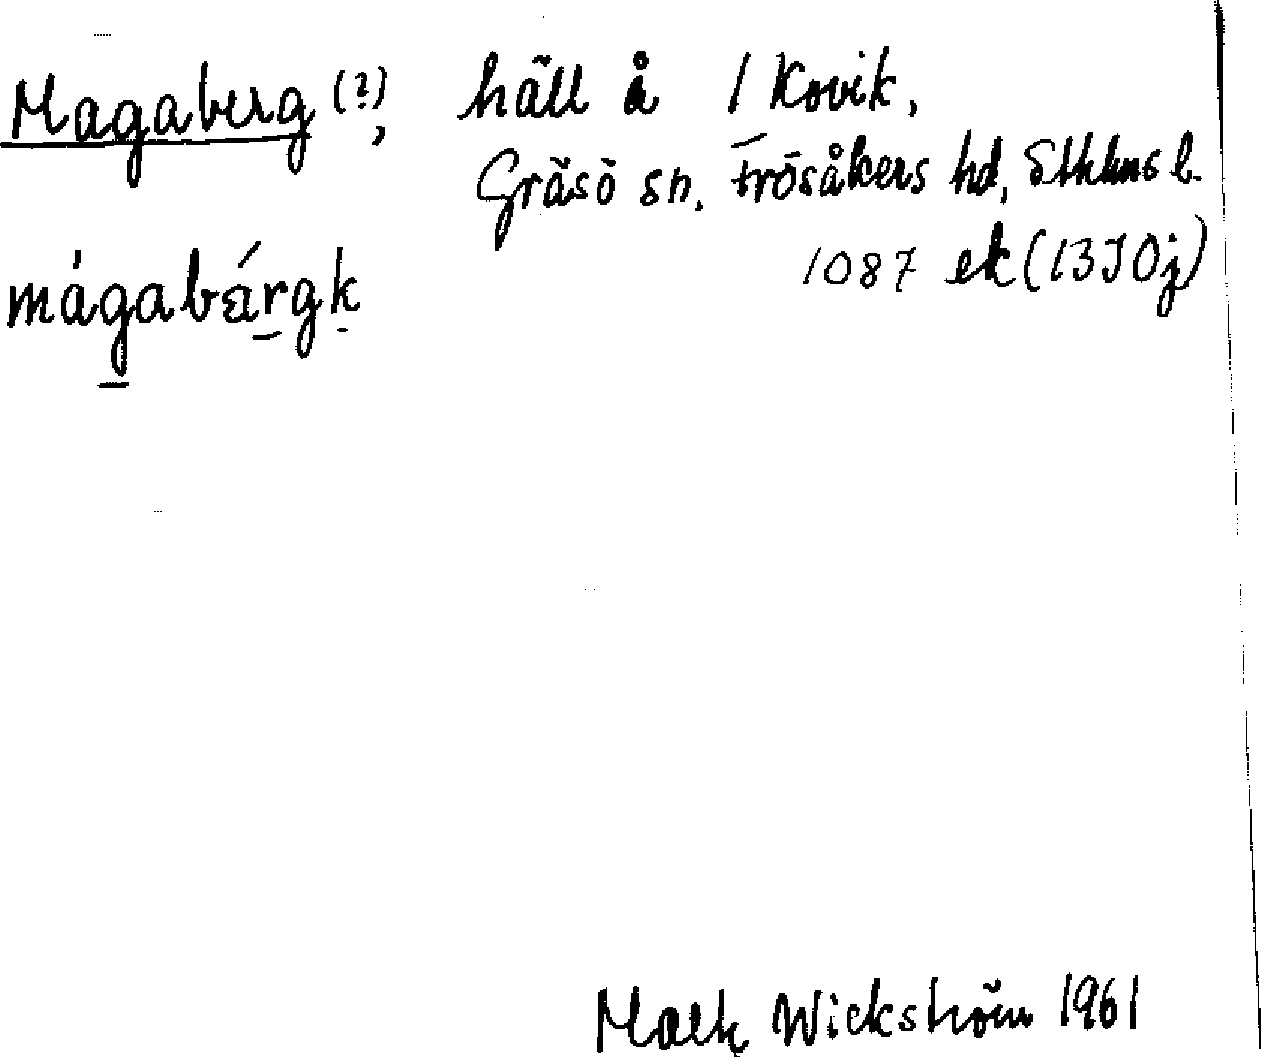 Magaberg (?), häll å 1 Kovik,
Gräsö sn, Frösåkers hd, Sthlms l.
mágabárgk
1087 ek (13J0j)
Wickström 1961